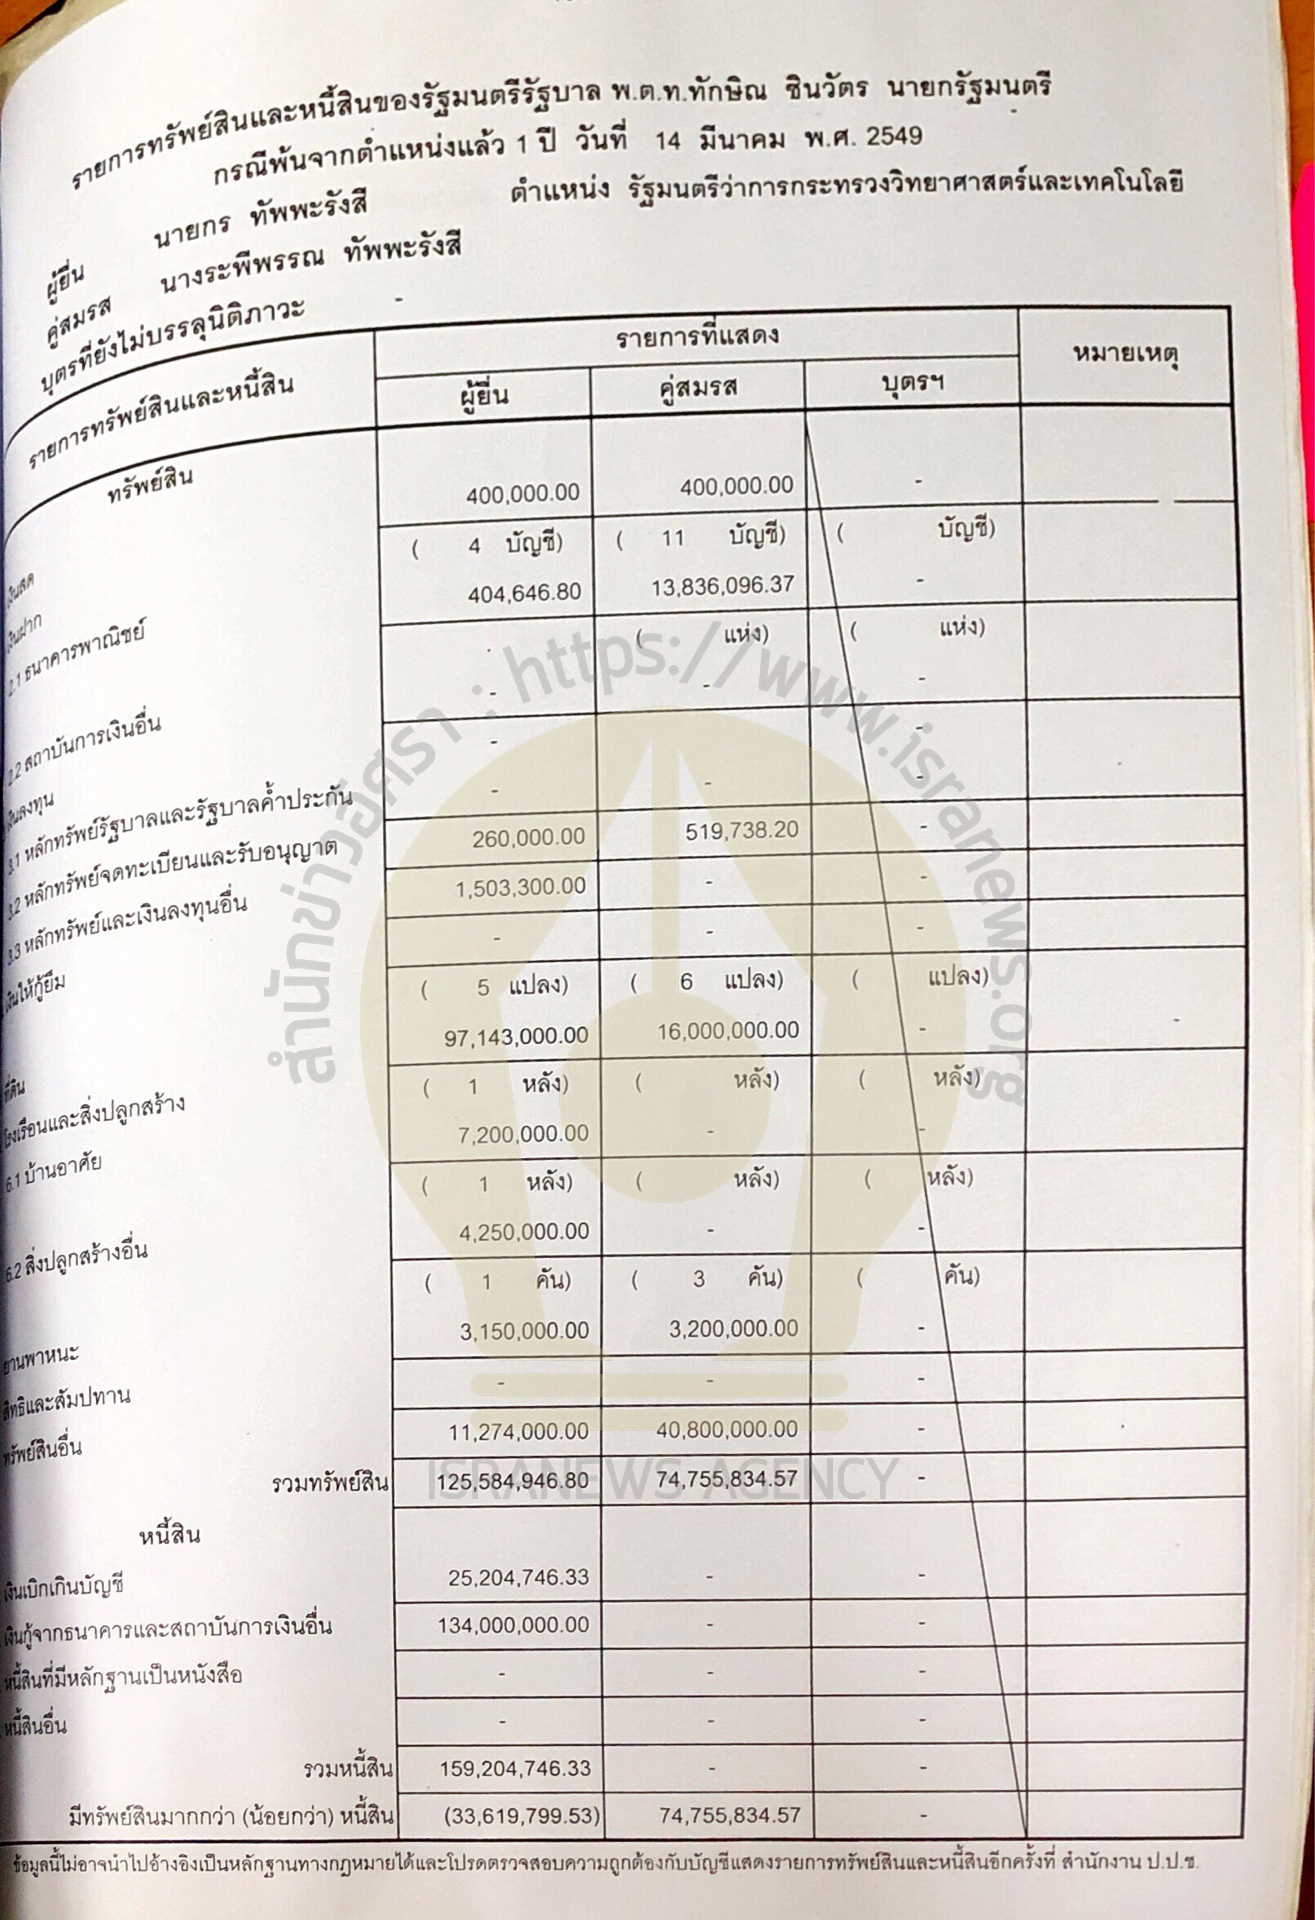 รายการทรัพย์สินและหนี้สินของรัฐมนตรีรัฐบาล พ.ต.ท.ทักษิณ ชินวัตร นายกรัฐมนตรี
กรณีพ้นจากตำแหน่งแล้ว 1 ปี วันที่ 14 มีนาคม พ.ศ. 2549
ผู้ยื่น นายกร ทัพพะรังสี ตำแหน่ง รัฐมนตรีว่าการกระทรวงวิทยาศาสตร์และเทคโนโลยี
คู่สมรส นางระพีพรรณ ทัพพะรังสี
บุตรที่ยังไม่บรรลุนิติภาวะ -
รายการทรัพย์สินและหนี้สิน รายการที่แสดง หมายเหตุ
ผู้ยื่น คู่สมรส บุตรฯ
ทรัพย์สิน
เงินสด 400,000.00 400,000.00 -
เงินฝาก
2.1 ธนาคารพาณิชย์ ( 4 บัญชี) ( 11 บัญชี) ( บัญชี)
404,646.80 13,836,096.37 -
2.2 สถาบันการเงินอื่น - ( แห่ง) ( แห่ง)
- - -
เงินลงทุน
3.1 หลักทรัพย์รัฐบาลและรัฐบาลค้ำประกัน - -
- - -
3.2 หลักทรัพย์จดทะเบียนและรับอนุญาต 260,000.00 519,738.20 -
3.3 หลักทรัพย์และเงินลงทุนอื่น 1,503,300.00 - -
เงินให้กู้ยืม - - -
ที่ดิน ( 5 แปลง) ( 6 แปลง) ( แปลง)
97,143,000.00 16,000,000.00 - -
โรงเรือนและสิ่งปลูกสร้าง
6.1 บ้านอาศัย ( 1 หลัง) ( หลัง) ( หลัง)
7,200,000.00 - -
6.2 สิ่งปลูกสร้างอื่น ( 1 หลัง) ( หลัง) ( หลัง)
4,250,000.00 - -
ยานพาหนะ ( 1 คัน) ( 3 คัน) ( คัน)
3,150,000.00 3,200,000.00 -
สิทธิและสัมปทาน - - -
ทรัพย์สินอื่น 11,274,000.00 40,800,000.00 -
รวมทรัพย์สิน 125,584,946.80 74,755,834.57 -
หนี้สิน
เงินเบิกเกินบัญชี 25,204,746.33 - -
เงินกู้จากธนาคารและสถาบันการเงินอื่น 134,000,000.00 - -
หนี้สินที่มีหลักฐานเป็นหนังสือ - - -
หนี้สินอื่น - - -
รวมหนี้สิน 159,204,746.33 - -
มีทรัพย์สินมากกว่า (น้อยกว่า) หนี้สิน (33,619,799.53) 74,755,834.57 -
ข้อมูลนี้ไม่อาจนำไปอ้างอิงเป็นหลักฐานทางกฎหมายได้และโปรดตรวจสอบความถูกต้องกับบัญชีแสดงรายการทรัพย์สินและหนี้สินอีกครั้งที่ สำนักงาน ป.ป.ช.
สำนักข่าวอิศรา : https://www.isranews.org
ISRANEWS AGENCY